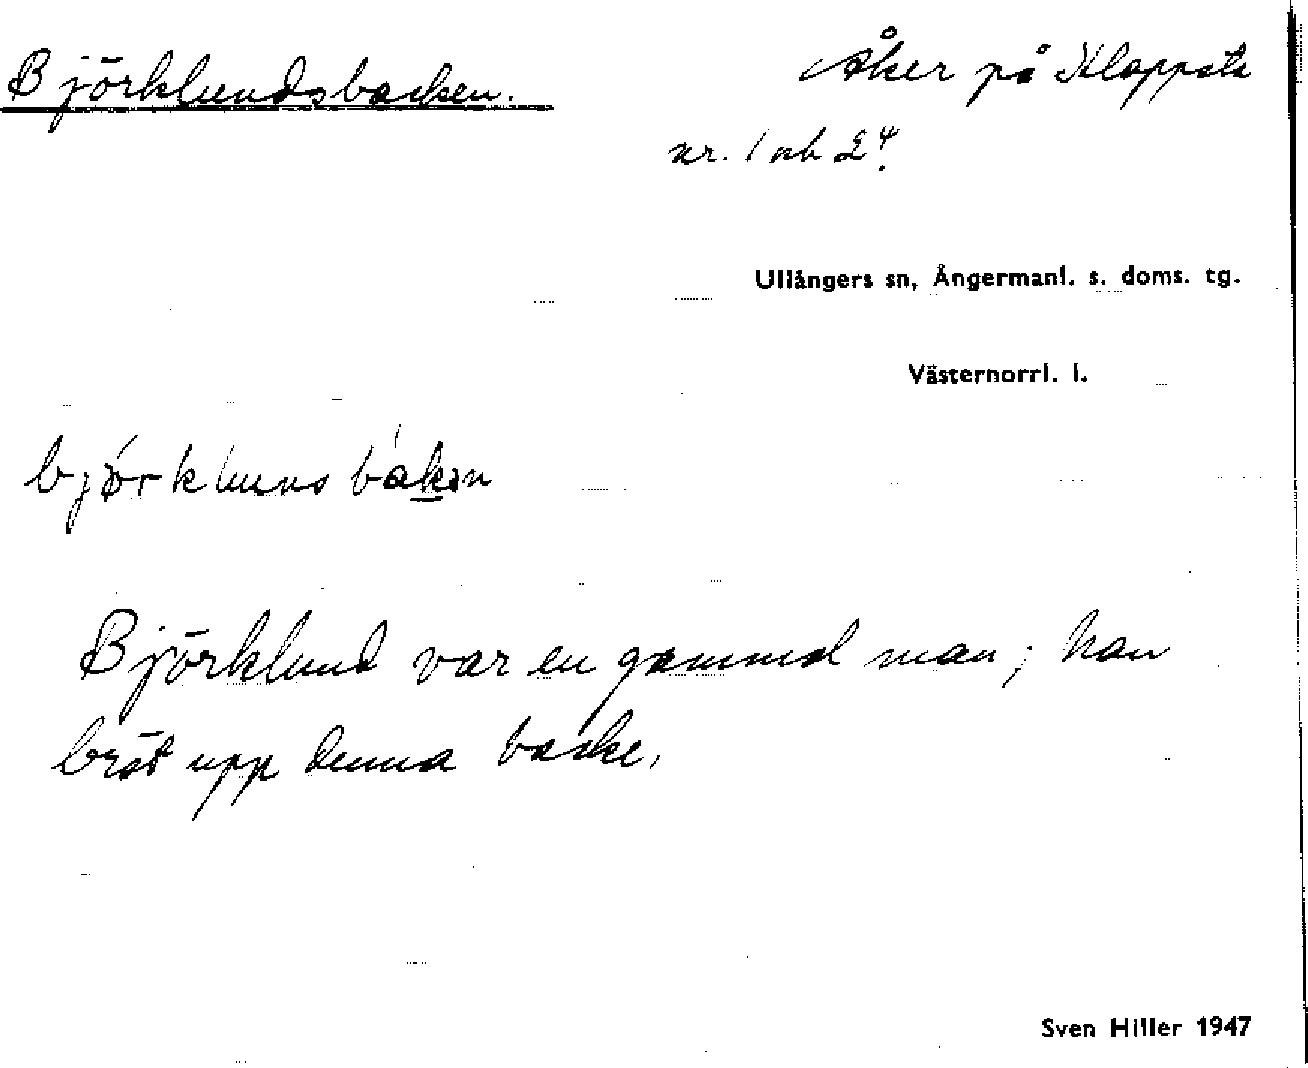 Björklundsbacken.
Åker på Klappsta
nr. 1 och 2⁴.
Ullångers sn, Ångermanl. s. doms. tg.
Västernorrl. l.
Björklund var en gammal man; han
bröt upp denna backe.
Sven Hiller 1947